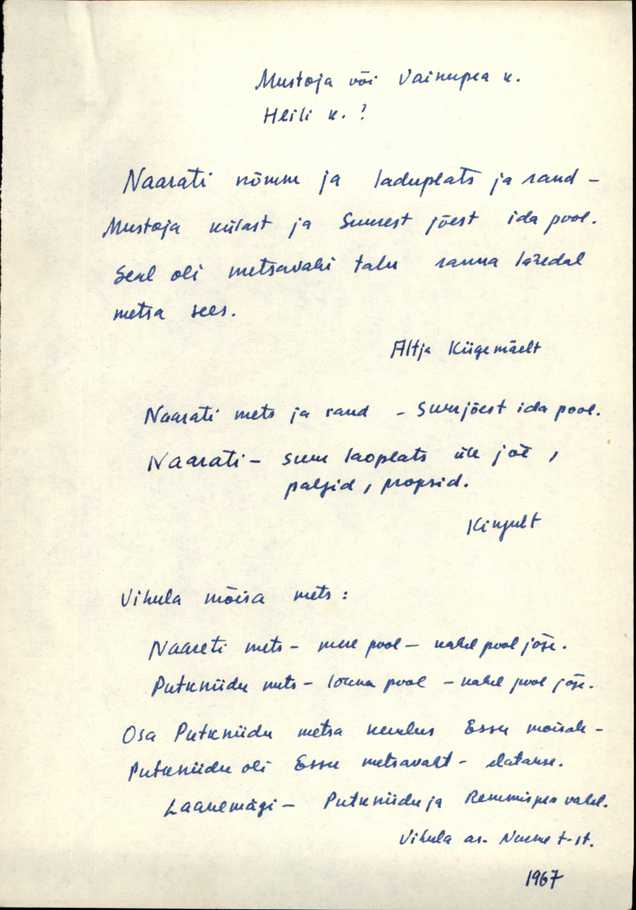 Mustoja või Vainupea k.
Heili k. ?
Naarati nõmm ja laduplats ja rand -
Mustoja külast ja Suurest jõest ida pool.
Seal oli metsavahi talu ranna lähedal
metsa sees.
Altja Kiigemäelt
Naarati mets ja rand - Suurjõest ida pool.
Naarati - suur laoplats üle jõe,
palgid, propsid.
Kingult
Vihula mõisa mets:
Naareti mets - mere pool - kahel pool jõge.
Putkniidu mets - lõuna pool - kahel pool jõge.
Osa Putkniidu metsa kuulus Essu mõisale -
Putkniidu oli Essu metsavaht -
Laanemägi - Putkniidu ja vahel.
Vihula as. t-st.
1967